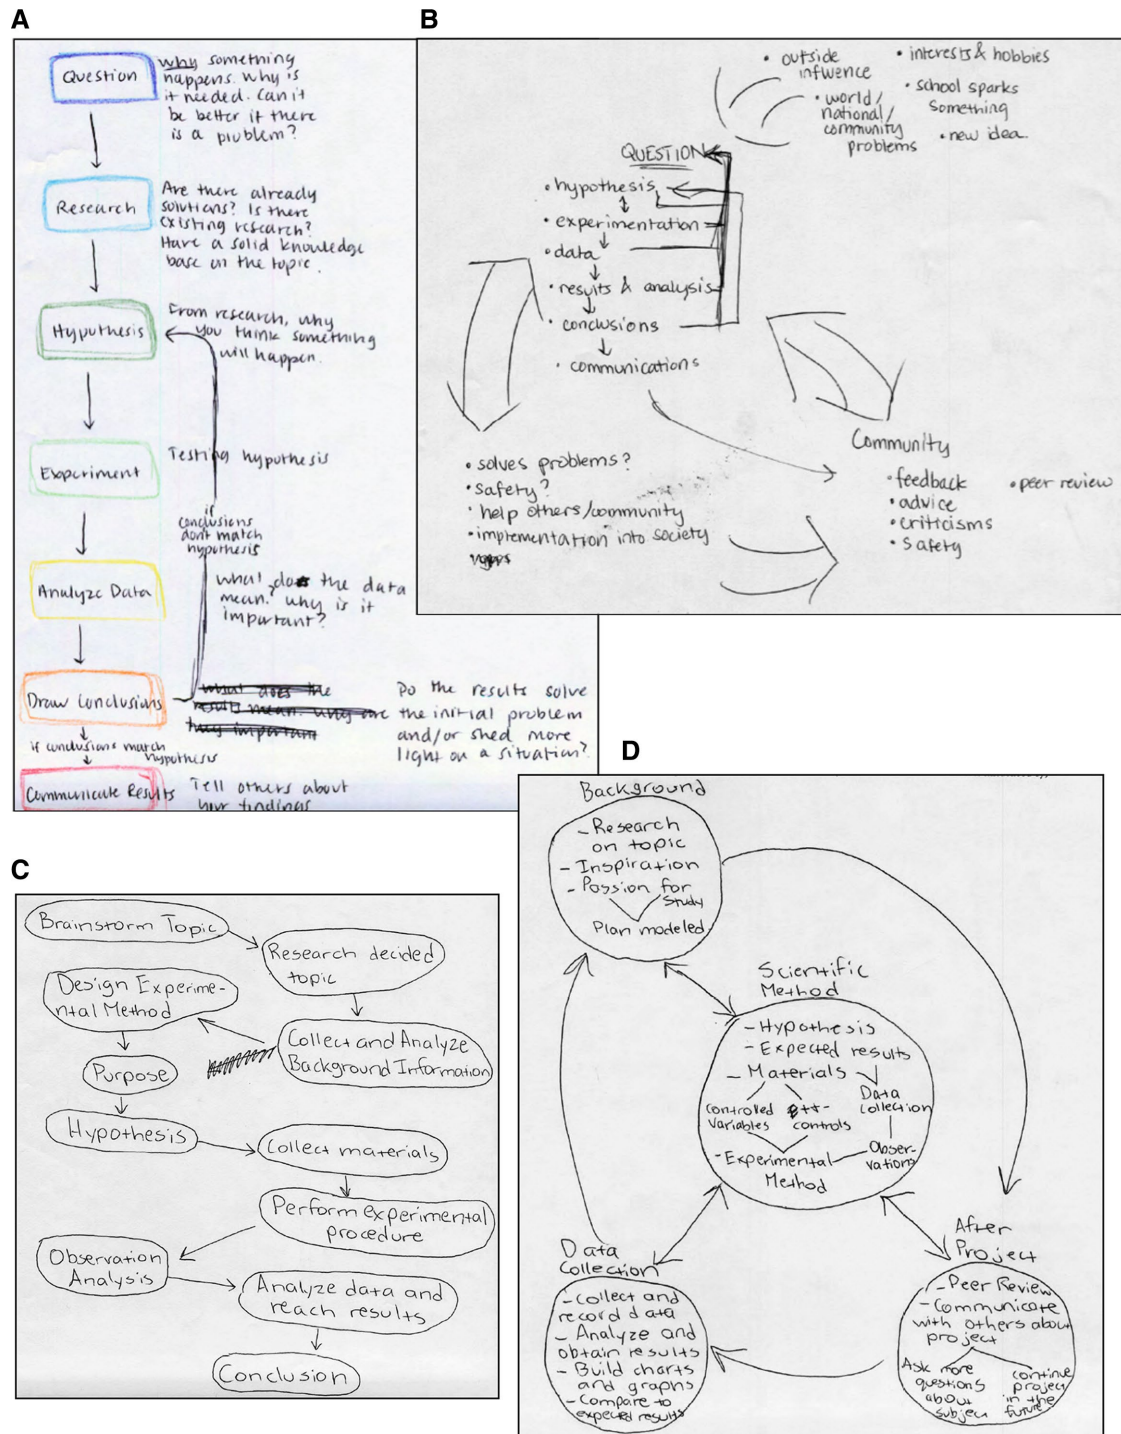 A
Question
why something
happens. Why is
it needed. Can it
be better if there
is a problem?
Research
Are there already
solutions? Is there
existing research?
Have a solid knowledge
base on the topic.
Hypothesis
From research, why
you think something
will happen.
Experiment
Testing hypothesis
if
conclusions
don't match
hypothesis
Analyze Data
what does the data
mean? why is it
important?
Draw Conclusions
what does the
results mean. why are
they important
Do the results solve
the initial problem
and/or shed more
light on a situation?
if conclusions match
hypothesis
Communicate Results
Tell others about
your findings
B
• outside
influence
• world/
national/
community
problems
• interests & hobbies
• school sparks
something
• new idea
QUESTION
• hypothesis
• experimentation
• data
• results & analysis
• conclusions
• communications
• solves problems?
• safety?
• help others/community
• implementation into society
Community
• feedback
• advice
• criticisms
• safety
• peer review
C
Brainstorm Topic
Research decided
topic
Collect and Analyze
Background Information
Design Experime-
ntal Method
Purpose
Hypothesis
Collect materials
Perform experimental
procedure
Observation
Analysis
Analyze data and
reach results
Conclusion
D
Background
- Research
on topic
- Inspiration
- Passion for
study
Plan modeled
Scientific
Method
- Hypothesis
- Expected results
- Materials
controlled
variables
++-
controls
Data
collection
Obser-
vations
- Experimental
Method
After
Project
- Peer Review
- Communicate
with others about
project
Ask more
questions
about
subject
continue
project
in the
future
Data
Collection
- Collect and
record data
- Analyze and
obtain results
- Build charts
and graphs
- Compare to
expected results